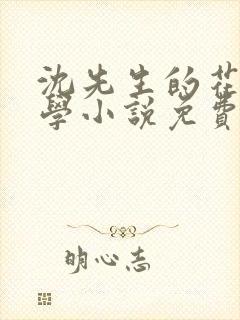 沈先生的
學小說免費
明心志